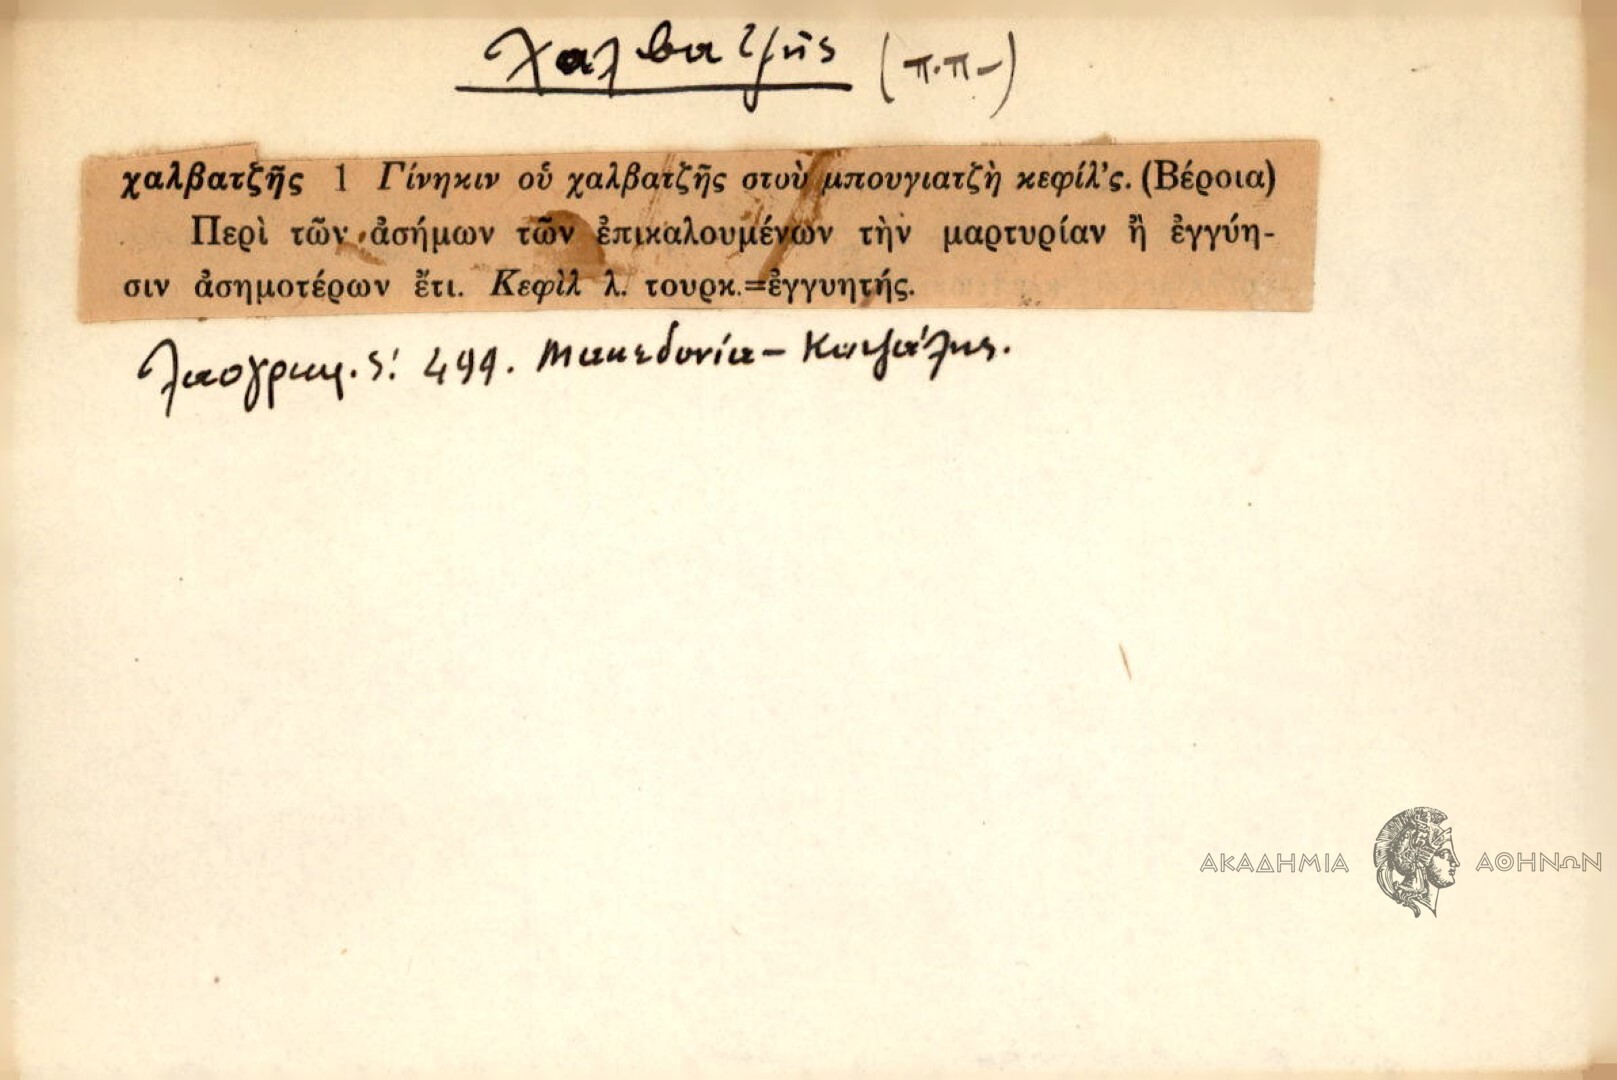 Χαλβατζῆς (π.π-)
χαλβατζῆς 1 Γίνηκιν οὑ χαλβατζῆς στοὺ μπουγιατζὴ κεφίλ'ς. (Βέροια)
Περὶ τῶν ἀσήμων τῶν ἐπικαλουμένων τὴν μαρτυρίαν ἢ ἐγγύη-
σιν ἀσημοτέρων ἔτι. Κεφὶλ λ. τουρκ.=ἐγγυητής.
Λαογραφ. 499. Μακεδονία –
ΑΚΑΔΗΜΙΑ ΑΘΗΝΩΝ